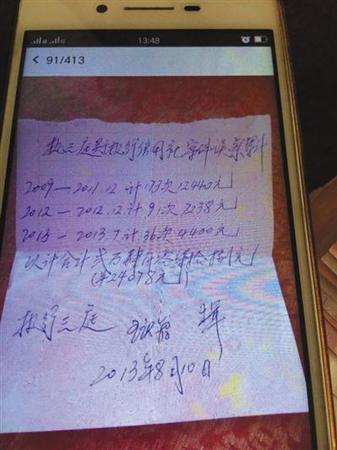 13:48
91/413
执三庭对执行信用社案件误餐累计
2009—2011.12.计173次12440元
2012—2012.12.计91次7238元
2013—2013.7.计36次4400元
以计合计贰万肆仟零柒拾捌元
(￥24078元)
执行三庭
2013年8月10日